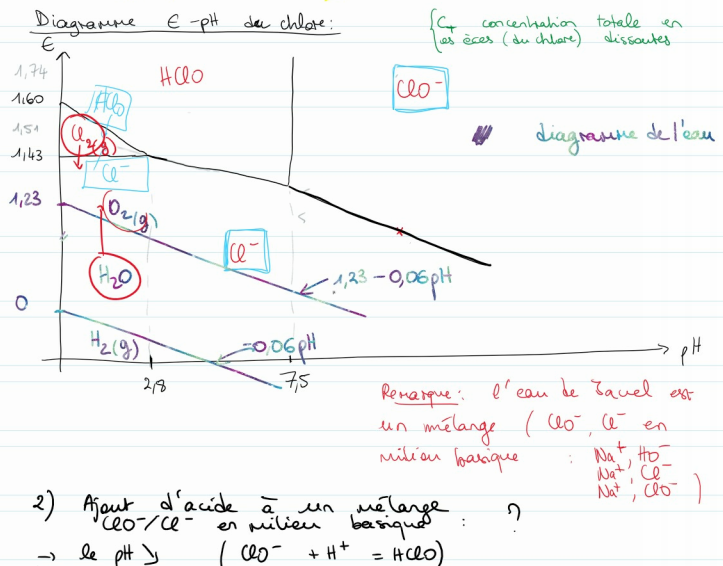 Diagramme E-pH du chlore :
{ C_T concentration totale en
espèces (du chlore) dissoutes
E
1,74
HClO
ClO⁻
1,60
HClO
1,51
Cl₂(g)
diagramme de l'eau
1,43
Cl⁻
1,23
O₂(g)
Cl⁻
H₂O
1,23 - 0,06pH
0
H₂(g)
-0,06pH
pH
2,8
7,5
Remarque : l'eau de Javel est
un mélange (ClO⁻, Cl⁻ en
milieu basique : Na⁺, HO⁻
Na⁺, Cl⁻
Na⁺, ClO⁻)
2) Ajout d'acide à un mélange
ClO⁻/Cl⁻ en milieu basique : ?
→ le pH ↘ (ClO⁻ + H⁺ = HClO)